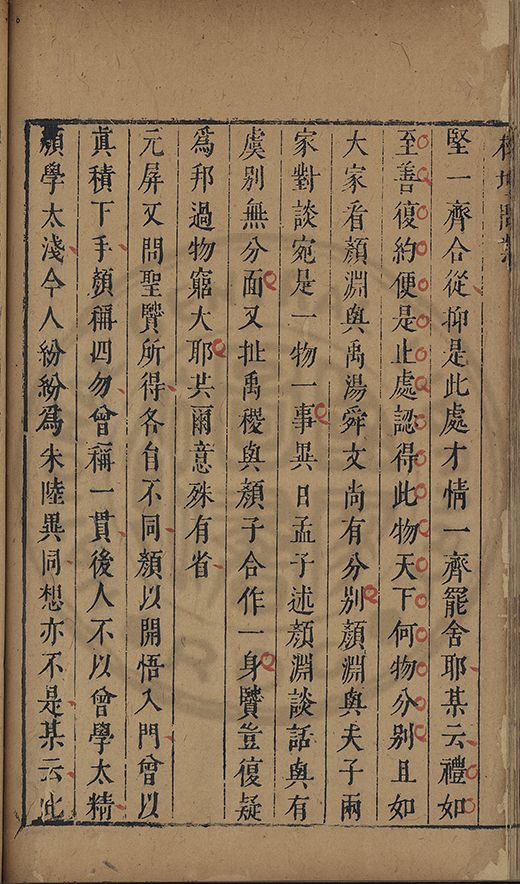 堅一齊合從抑是此處才情一齊罷舍耶某云禮如
至善復約便是止處認得此物天下何物分別且如
大家看顏淵與禹湯舜文尚有分別顏淵與夫子兩
家對談宛是一物一事異日孟子述顏淵談話與有
虞別無分面又扯禹稷與顏子合作一身贒豈復疑
為邦過物窮大耶共爾意殊有省
元屏又問聖贒所得各自不同顏以開悟入門曾以
眞積下手顏稱四勿曾稱一貫後人不以曾學太精
顏學太淺今人紛紛為朱陸異同想亦不是某云此